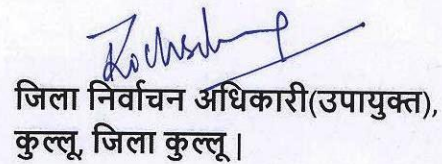 जिला निर्वाचन अधिकारी(उपायुक्त),
कुल्लू, जिला कुल्लू।